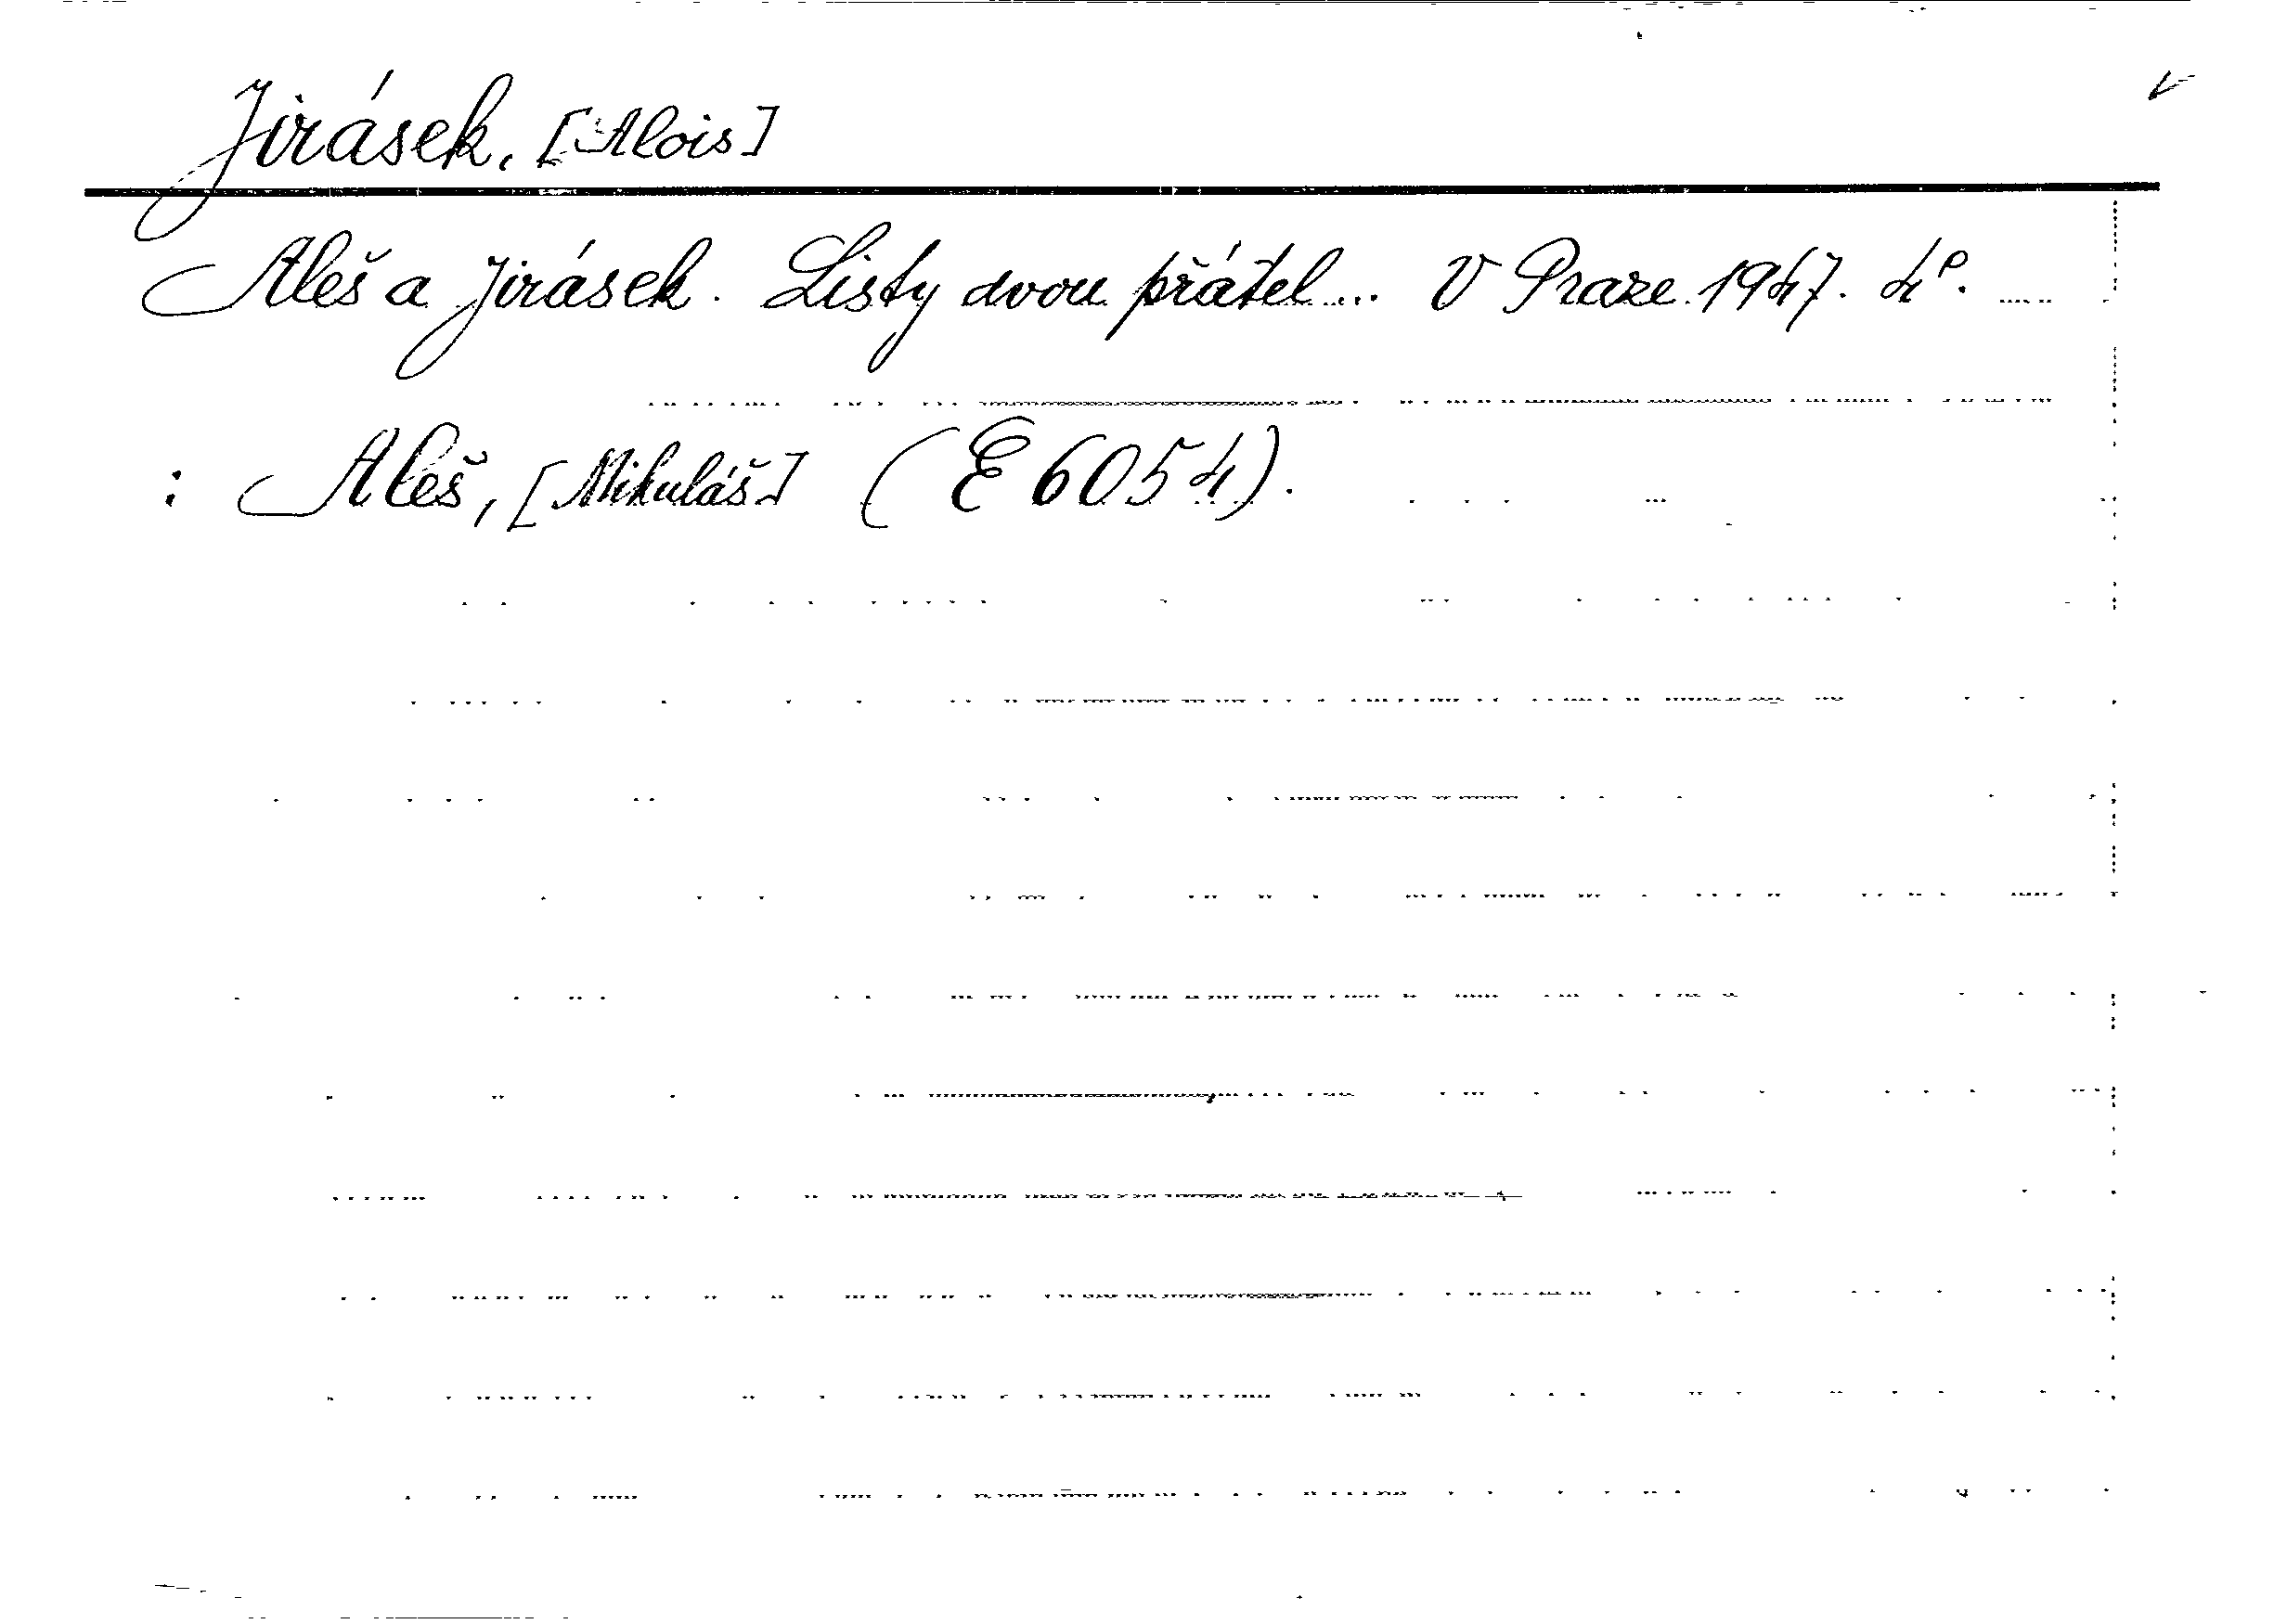 Jirásek, [Alois]
Aleš a Jirásek. Listy dvou přátel... V Praze 1947. 4°.
: Aleš, [Mikuláš] (E 6054).